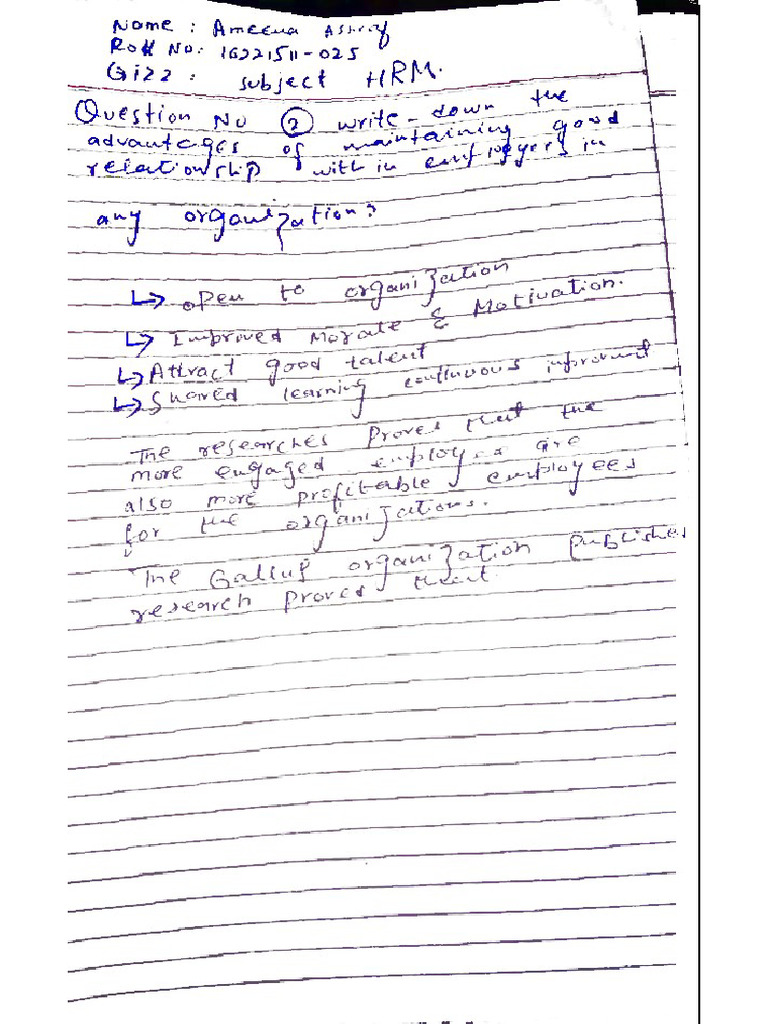 Name : Ameena Ashraf
Roll No: 16221511-025
Qizz : Subject HRM.
Question No ② write-down the
advanteges of maintaining good
relationship with in employers in
any organization?
↳ open to organization
↳ Improved Morale & Motivation.
↳ Attract good talent
↳ Shared learning continuous
The researches Proves that the
more engaged are
also more profitable employees
for the organizations.
The Gallup organization publishes
research proves that